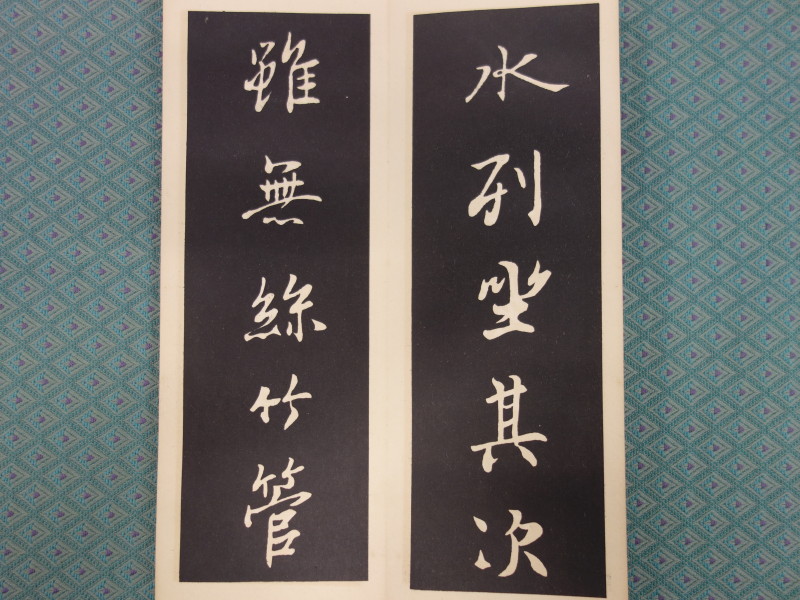 水列坐其次
雖無絲竹管